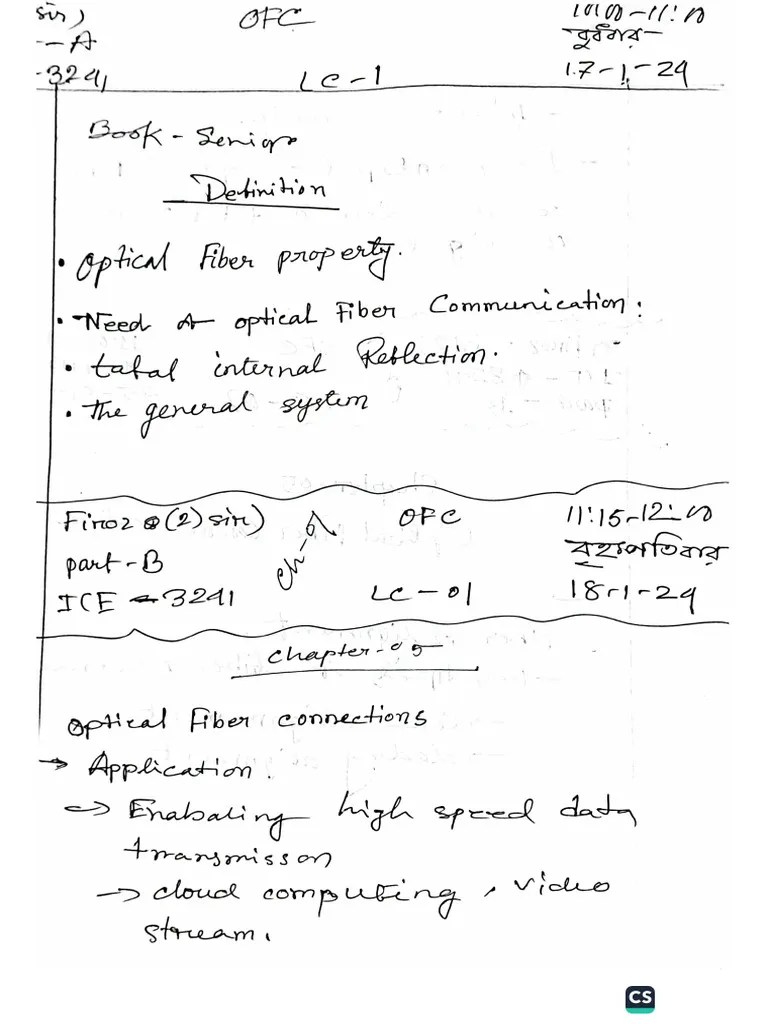 sir) OFC 10:00-11:00
-A বুধবার
-3241 LC-1 17-1-24
Book - Senior
Definition
• Optical Fiber property.
• Need of optical Fiber Communication:
• total internal Reflection.
• The general system
Firoz (2) sir) OFC 11:15-12:00
part-B ch-01 বৃহস্পতিবার
ICE - 3241 LC-01 18-1-24
Chapter-05
Optical Fiber connections
→ Application.
⇒ Enabaling high speed data
transmisson
→ cloud computing, video
stream.
CS